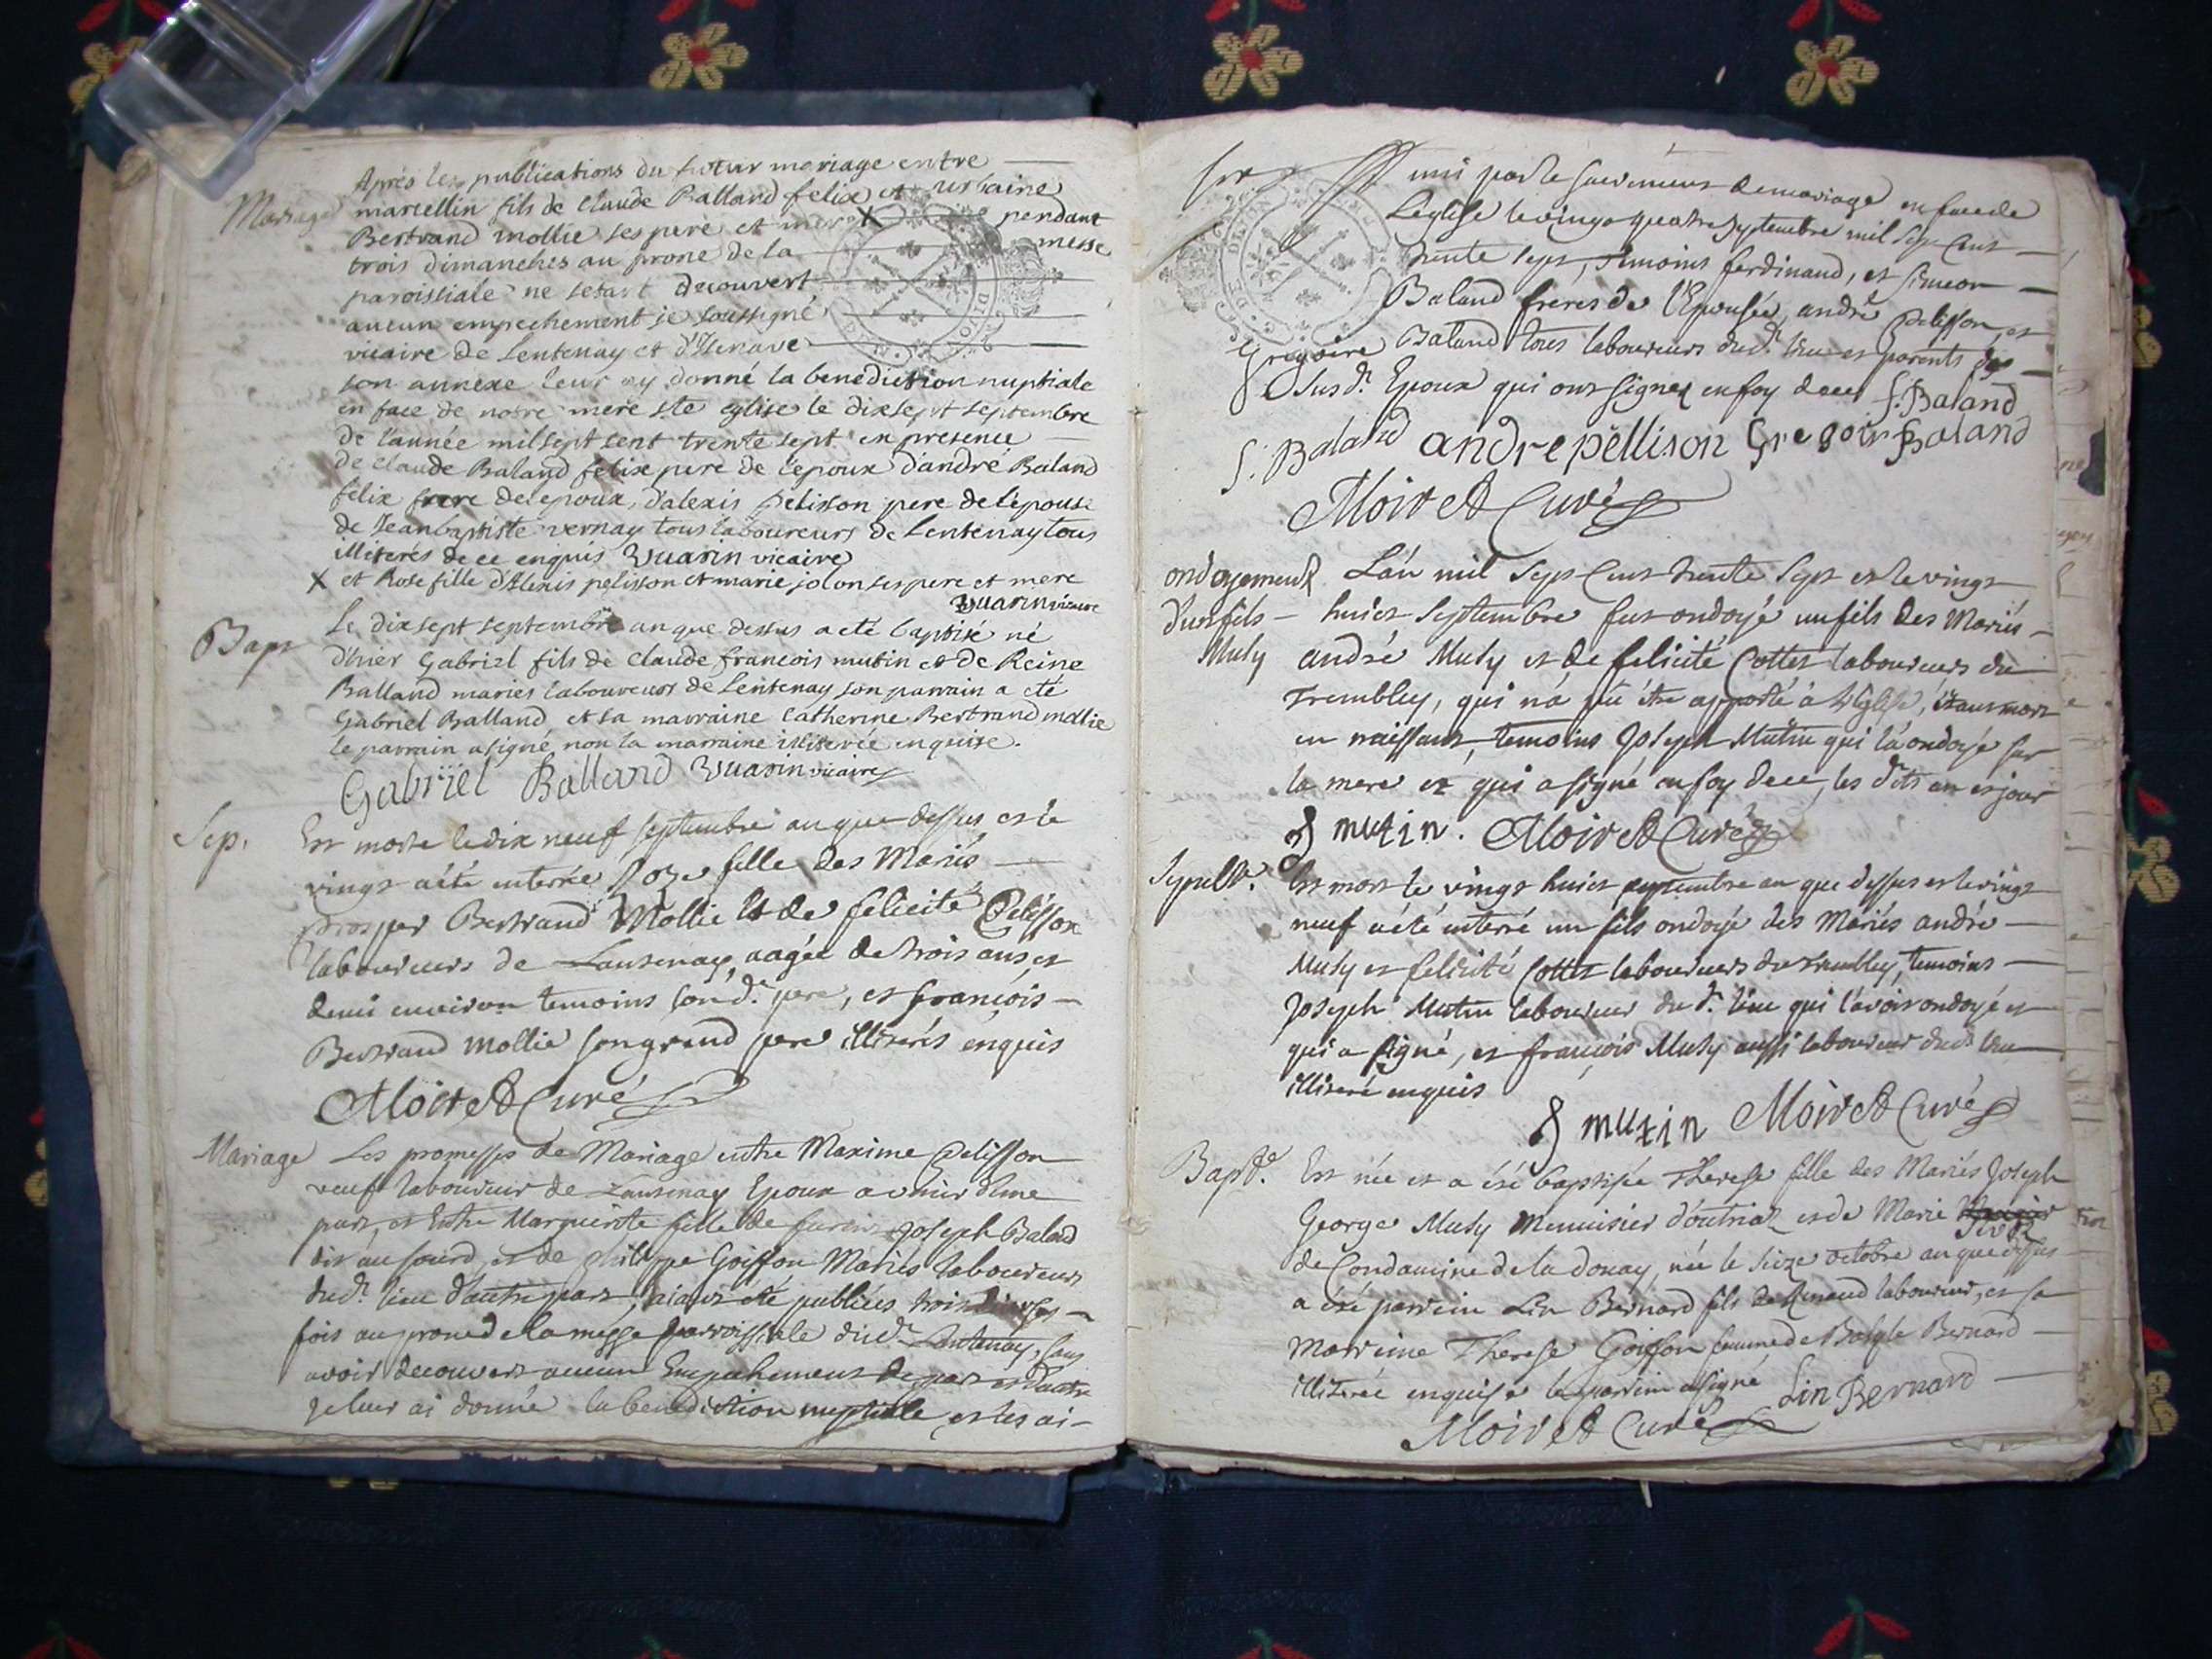 Mariage
Après les publications du futur mariage entre
marcellin fils de claude Balland felix et urbaine
Bertrand mollie ses pere et mere X pendant
trois dimanches au prone de la messe
paroissiale ne setant decouvert
aucun empechement je soussigné
vicaire de Lentenay et d'Izenave
son annexe leur ay donné la benediction nuptiale
en face de notre mere ste eglise le dixsept septembre
de l'année milsept cent trente sept en presence
de claude Baland felix pere de l'epoux d'andré Baland
felix frere delepoux, d'alexis pelisson pere de l'epouse
de Jeanbaptiste vernay tous laboureurs de Lentenay tous
illiterés de ce enquis Vuarin vicaire
X et Rose fille d'Alexis pelisson et marie jolon ses pere et mere
Vuarin vicaire
Bapt
Le dixsept septembre an que dessus a eté baptisé né
d'hier Gabriel fils de claude francois mutin et de Reine
Balland mariés laboureurs de Lentenay son parrain a eté
Gabriel Balland et sa marraine catherine Bertrand mollie
le parrain a signé non la marraine illiterée enquise.
Gabriel Balland Vuarin vicaire
Sep.
Est morte le dix neuf septembre an que dessus et le
vingt a été enterrée Roze fille des Mariés
prosper Bertrand Mollie et de felicité Pelisson
laboureurs de Lantenay, aagée de trois ans et
demi environ temoins son d. pere, et françois
Bertrand Mollie son grand pere illiterés enquis
Moiret Curé
Mariage
Les promesses de Mariage entre Maxime Pelisson
veuf laboureur de Lantenay Epoux a venir d'une
part, et Entre Marguerite fille de Joseph Baland
dit au sourd, et de philippe Goiffon Mariés laboureurs
dud. lieu d'autre part, aiant été publiées trois diverses
fois au prone de la messe parroissiale dud. Lantenay, sans
avoir decouvert aucun Empechement de part et d'autre
je leur ai donné la benediction nuptiale, et les ai
uni par le sacrement de mariage en face de
L'eglise le vingt quatre septembre mil sept cent
trente sept, temoins ferdinand, et simeon
Baland freres de l'Epousée, andré Pelisson, et
Grégoire Baland tous laboureurs dud. lieu et parents des
Susd. Epoux qui ont signez en foy de ce f. Baland
S. Baland andre pellison Gregoir Baland
Moiret Curé
ondoyement
d'un fils
Muty
L'an mil sept cent trente sept et le vingt
huict septembre fut ondoyé un fils des Mariés
andré Muty et de felicité Cottet laboureurs du
Trembley, qui n'a pû être apporté à l'Eglise, étant mort
en naissant, temoins Joseph Mutin qui l'a ondoyé sur
la mere et qui a signé en foy de ce, les d. ts an et jour
J mutin. Moiret Curé
Sepult.
Est mort le vingt huict septembre an que dessus et le vingt
neuf a été enterré un fils ondoyé des Mariés andré
Muty et felicité Cottet laboureurs du Trembley, temoins
Joseph Mutin laboureur du d. lieu qui l'avoit ondoyé et
qui a signé, et françois Muty aussi laboureur dud. lieu
illiteré enquis
J mutin Moiret Curé
Bapt.
Est née et a été baptisée Therese fille des Mariés Joseph
George Muty Menuisier d'outriaz et de Marie
de Condamine de la donay, née le seize octobre an que dessus
a été parrain Lin Bernard fils de laboureur, et sa
Marrine Therese Goiffon femme de Basyle Bernard
illiterée enquise le parrin a signé Lin Bernard
Moiret Curé